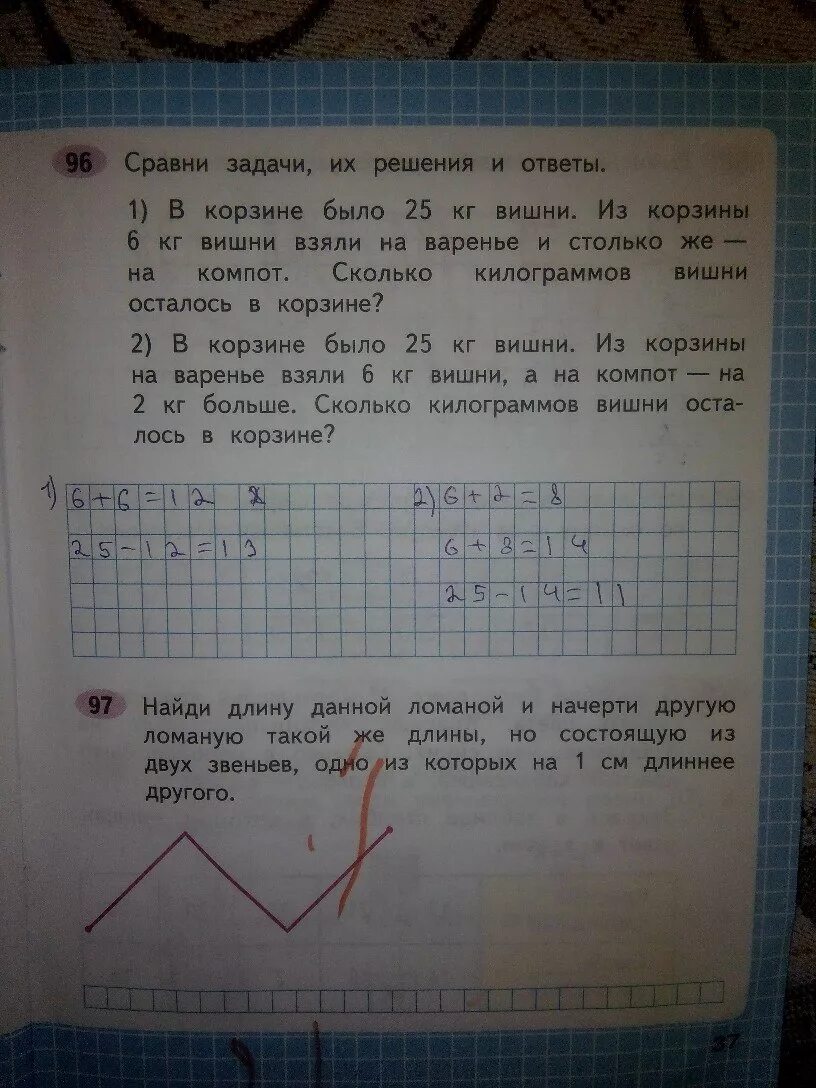 96 Сравни задачи, их решения и ответы.
1) В корзине было 25 кг вишни. Из корзины
6 кг вишни взяли на варенье и столько же —
на компот. Сколько килограммов вишни
осталось в корзине?
2) В корзине было 25 кг вишни. Из корзины
на варенье взяли 6 кг вишни, а на компот — на
2 кг больше. Сколько килограммов вишни оста-
лось в корзине?
1) 6+6=12
25-12=13
2) 6+2=8
6+8=14
25-14=11
97 Найди длину данной ломаной и начерти другую
ломаную такой же длины, но состоящую из
двух звеньев, одно из которых на 1 см длиннее
другого.
37